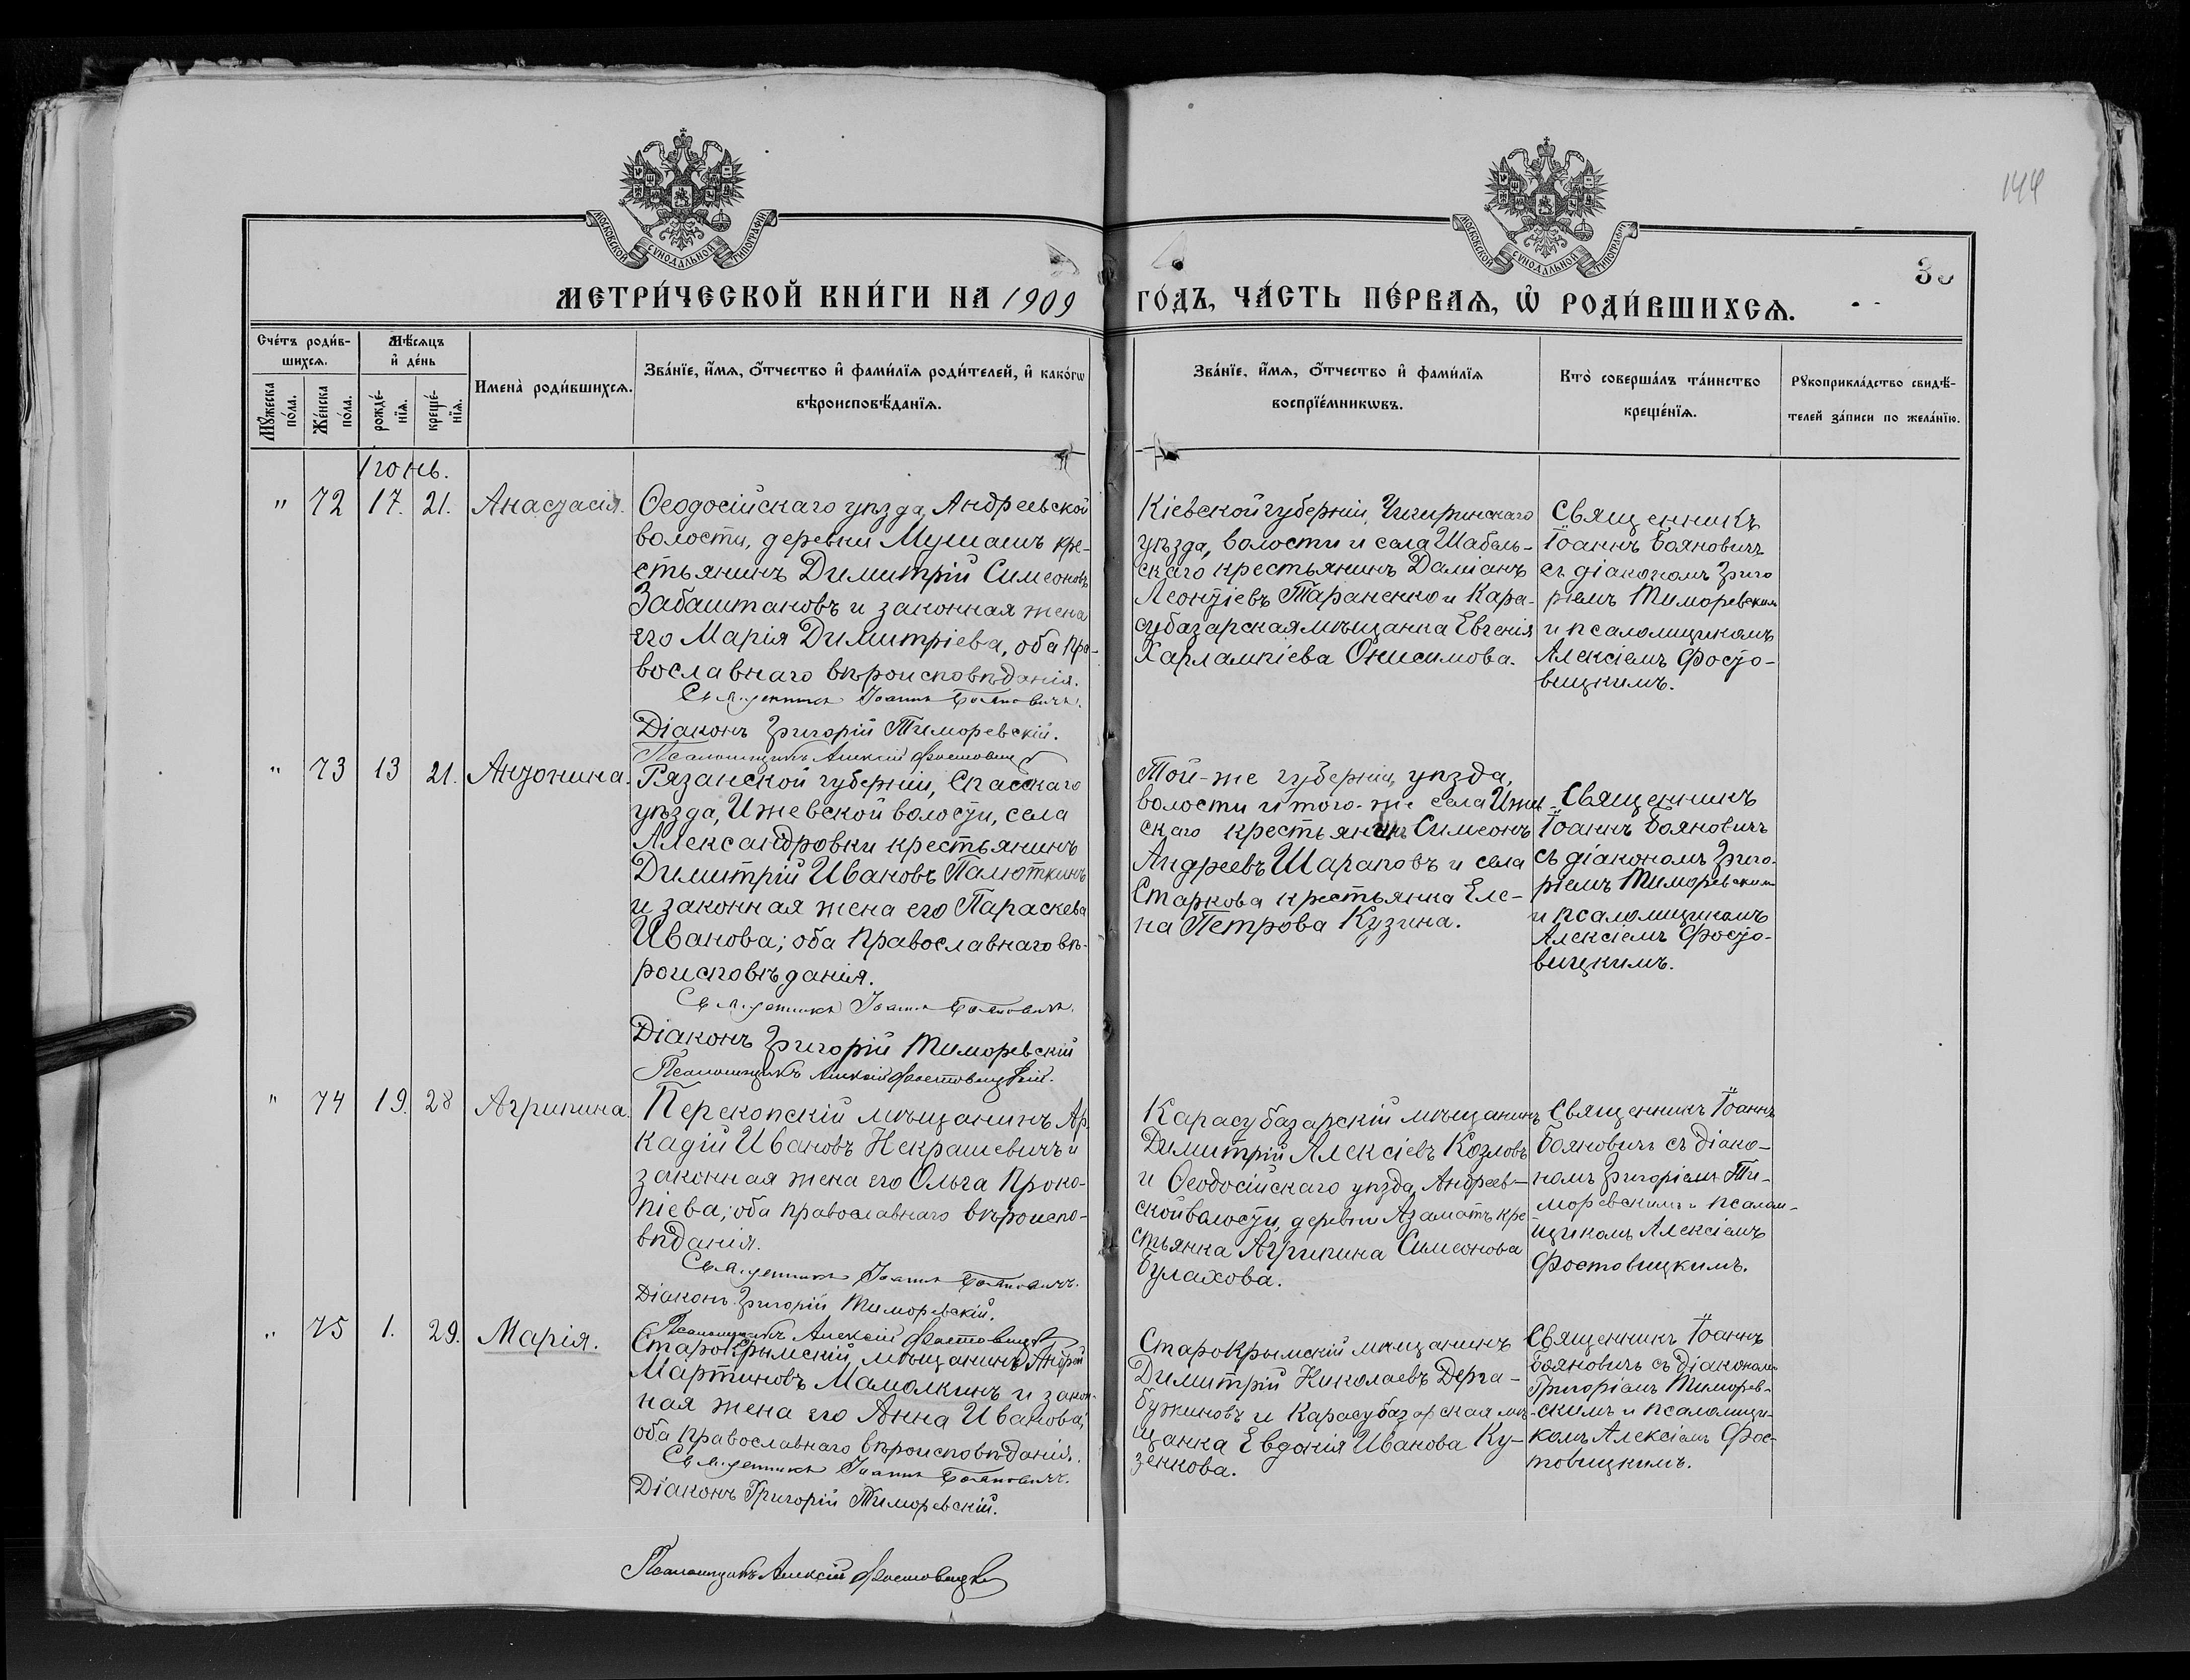 144
МОСКОВСКОЙ СѴНОДАЛЬНОЙ ТИПОГРАФІИ
МОСКОВСКОЙ СѴНОДАЛЬНОЙ ТИПОГРАФІИ
МЕТРИ́ЧЕСКОЙ КНИ́ГИ НА 1909
ГО́ДЪ, ЧА́СТЬ ПЕ́РВАѦ, Ѡ РОДИ́ВШИХСѦ.
Сче́тъ роди́в-
шихсѧ.
Мꙋжеска
по́ла.
Же́нска
по́ла.
Мѣ́сѧцъ
и҆ де́нь
рожде́-
нїѧ.
креще́-
нїѧ.
Имена̀ роди́вшихсѧ.
Зва́нїе, и҆́мѧ, ѻ҆́тчество и҆ фами́лїѧ роди́телей, и҆ како́гѡ
вѣроисповѣ́данїѧ.
Зва́нїе, и҆́мѧ, ѻ҆́тчество и҆ фами́лїѧ
воспрїе́мникѡвъ.
Кто̀ соверша́лъ та́инство
креще́нїѧ.
Рꙋкоприкла́дство свидѣ́-
телей за́писи по жела́нїю.
Іюнь.
" 72 17. 21. Анастасія.
Ѳеодосійскаго уѣзда, Андреевской
волости, деревни Мушашъ кре-
стьянинъ Димитрій Симеоновъ
Забаштановъ и законная жена
его Марія Димитріева, оба пра-
вославнаго вѣроисповѣданія.
Священникъ Іоаннъ Бояновичъ.
Діаконъ Григорій Тиморевскій.
Псаломщикъ Алексій Фостовицкій
Кіевской губерніи, Чигиринскаго
уѣзда, волости и села Шабель-
скаго крестьянинъ Даміанъ
Леонтіевъ Тараненко и Кара-
субазарская мѣщанка Евгенія
Харлампіева Онисимова.
Священникъ
Іоаннъ Бояновичъ
съ діакономъ Григо
ріемъ Тиморевскимъ
и псаломщикомъ
Алексіемъ Фосто-
вицкимъ.
" 73 13 21. Антонина.
Рязанской губерніи, Спасскаго
уѣзда, Ижевской волости, села
Александровки крестьянинъ
Димитрій Ивановъ Палюткинъ
и законная жена его Параскева
Иванова; оба православнаго вѣ-
роисповѣданія.
Священникъ Іоаннъ Бояновичъ.
Діаконъ Григорій Тиморевскій
Псаломщикъ Алексій Фостовицкій.
Той-же губерніи, уѣзда,
волости и того-же села Ижев-
скаго крестьянинъ Симеонъ
Андреевъ Шараповъ и села
Старкова крестьянка Еле-
на Петрова Кузина.
Священникъ
Іоаннъ Бояновичъ
съ діакономъ Григо-
ріемъ Тиморевскимъ
и псаломщикомъ
Алексіемъ Фосто-
вицкимъ.
" 74 19. 28 Агрипина.
Перекопскій мѣщанинъ Ар
кадій Ивановъ Некрашевичъ и
законная жена его Ольга Проко-
піева; оба православнаго вѣроиспо-
вѣданія.
Священникъ Іоаннъ Бояновичъ.
Діаконъ Григорій Тиморевскій.
Псаломщикъ Алексій Фостовицкій
Карасубазарскій мѣщанинъ
Димитрій Алексіевъ Козловъ
и Ѳеодосійскаго уѣзда, Андреев-
ской волости, деревни Азаматъ кре
стьянка Агрипина Симеонова
Булахова.
Священникъ Іоаннъ
Бояновичъ съ діако-
номъ Григоріемъ Ти-
моревскимъ и псалом-
щикомъ Алексіемъ
Фостовицкимъ.
" 75 1. 29. Марія.
Старокрымскій мѣщанинъ Андрей
Мартиновъ Мамолкинъ и закон-
ная жена его Анна Иванова;
оба православнаго вѣроисповѣданія.
Священникъ Іоаннъ Бояновичъ.
Діаконъ Григорій Тиморевскій.
Псаломщикъ Алексій Фостовицкій
Старокрымскій мѣщанинъ
Димитрій Николаевъ Дерга-
бужиновъ и Карасубазарская мѣ-
щанка Евдокія Иванова Ку-
зенкова.
Священникъ Іоаннъ
Бояновичъ съ діакономъ
Григоріемъ Тиморев-
скимъ и псаломщи-
комъ Алексіемъ Фос-
товицкимъ.